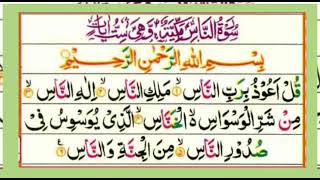 سُوْرَةُ النَّاسِ مَكِّيَّةٌ وَهِيَ سِتُّ اٰيَاتٍ
بِسْمِ اللّٰهِ الرَّحْمٰنِ الرَّحِيْمِ
قُلْ اَعُوْذُ بِرَبِّ النَّاسِ ۙ۱ مَلِكِ النَّاسِ ۙ۲ اِلٰهِ النَّاسِ ۙ۳
مِنْ شَرِّ الْوَسْوَاسِ ۙ۬ الْخَنَّاسِ ۪ۙ۴ الَّذِيْ يُوَسْوِسُ فِيْ
صُدُوْرِ النَّاسِ ۙ۵ مِنَ الْجِنَّةِ وَالنَّاسِ ۶